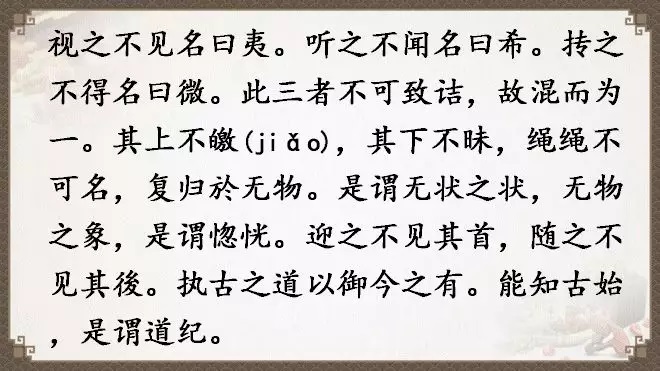 视之不见名曰夷。听之不闻名曰希。抟之
不得名曰微。此三者不可致诘，故混而为
一。其上不皦(jiǎo)，其下不昧，绳绳不
可名，复归於无物。是谓无状之状，无物
之象，是谓惚恍。迎之不见其首，随之不
见其後。执古之道以御今之有。能知古始
，是谓道纪。